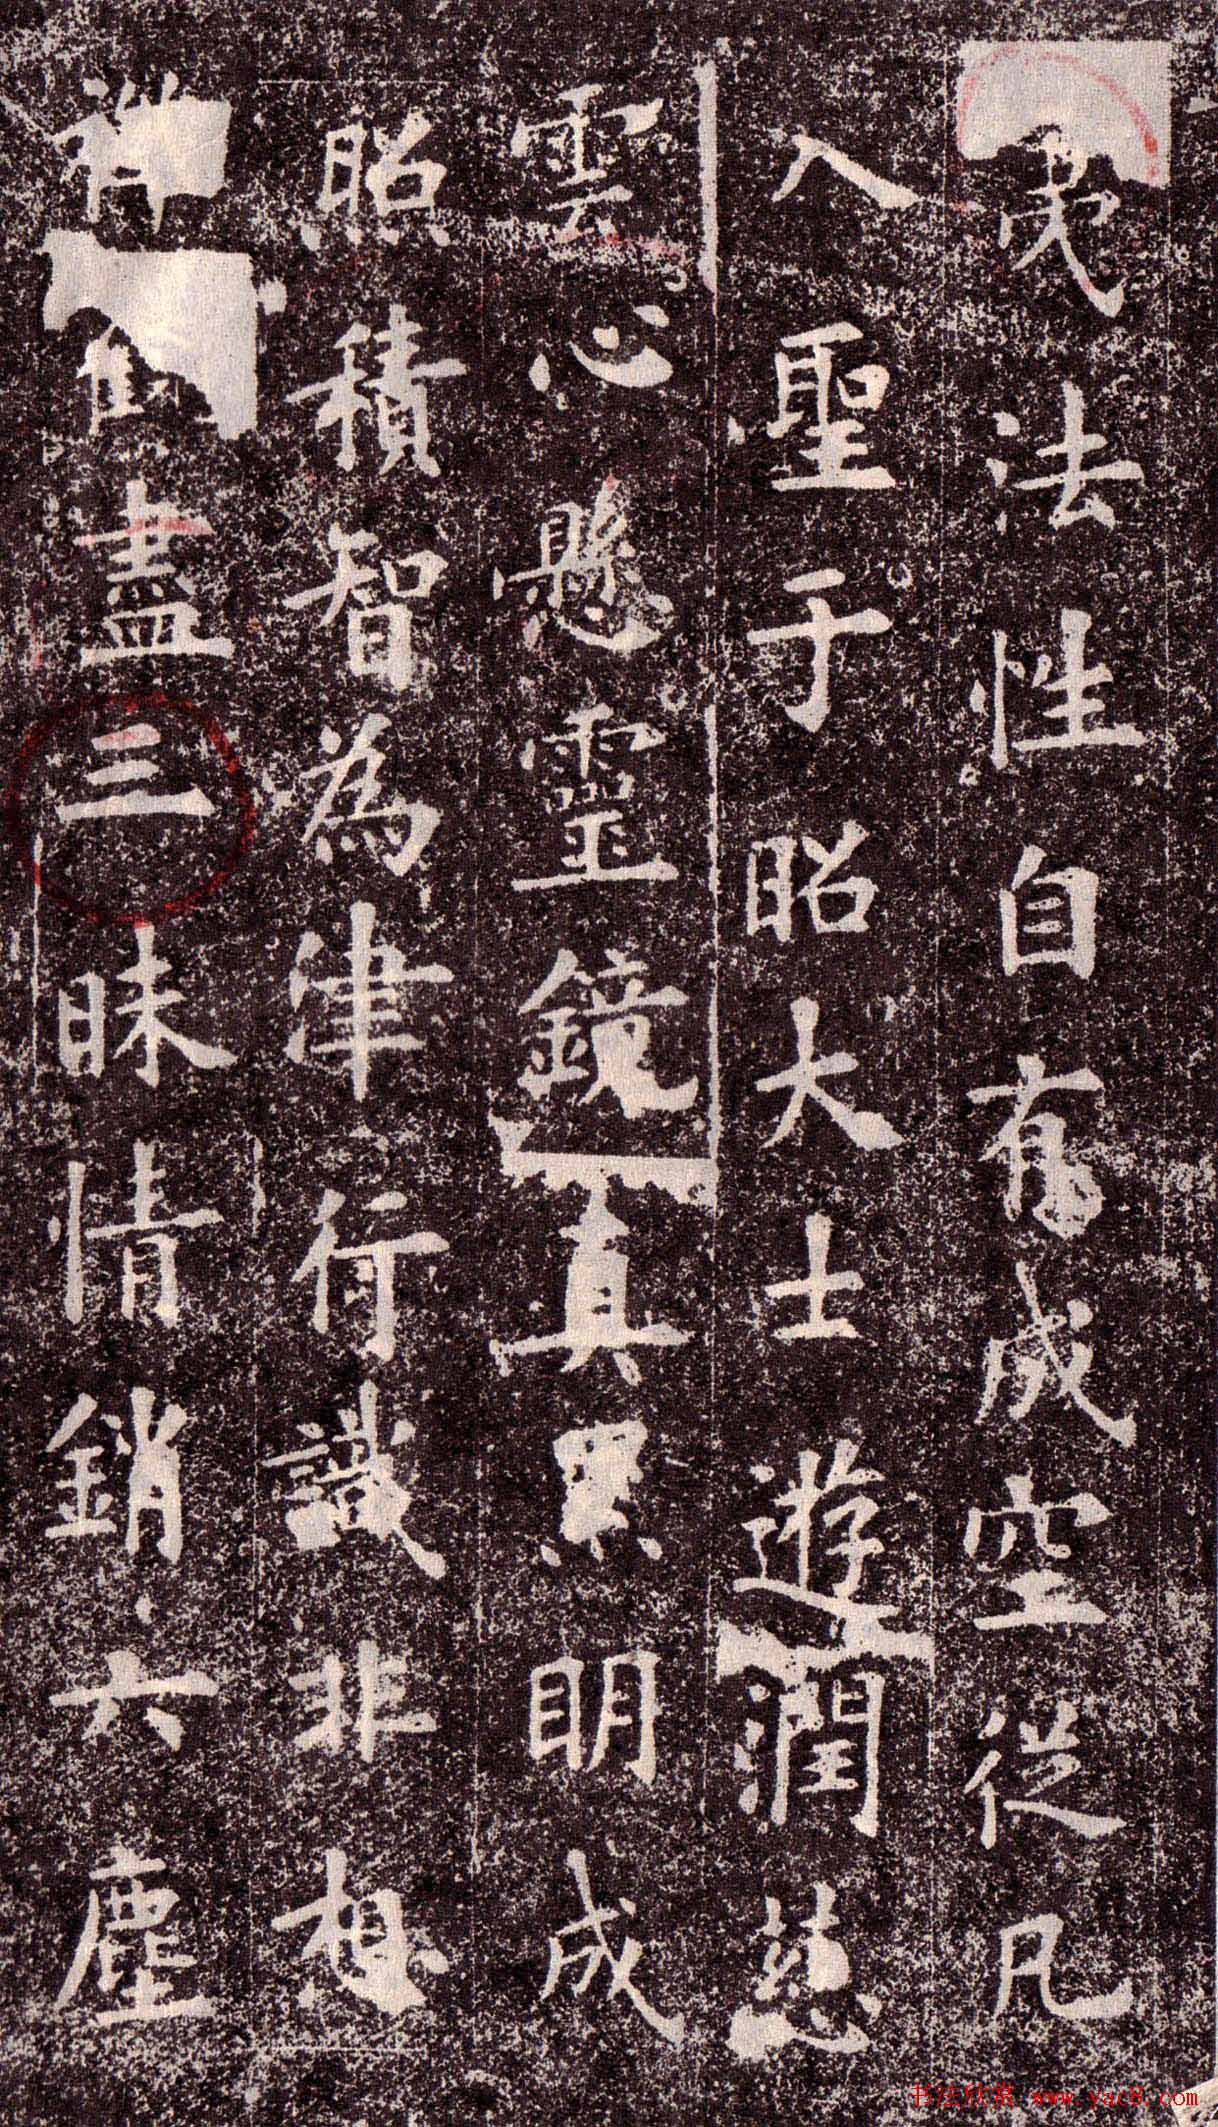 法性自有成空從凡
入聖于昭大士遊潤慈
雲心懸靈鏡真累明成
照積智為津行識非想
禪盡三昧情銷六塵
书法欣赏 www.yac8.com